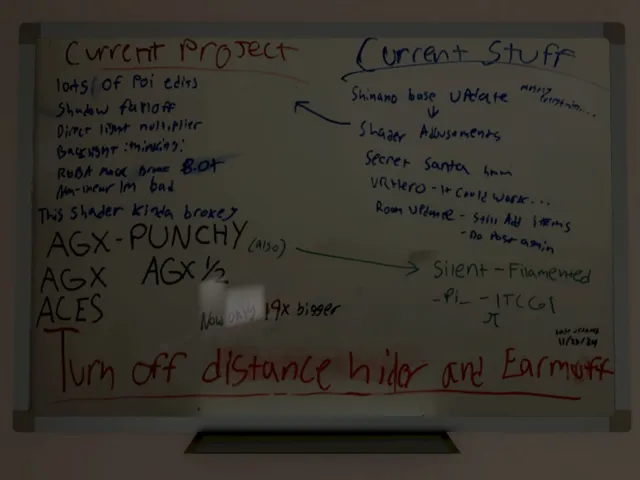 Current Project
lots of Poi edits
Shadow falloff
Direct light multiplier
Backlight :thinking:
Non-linear lm bad
This Shader kinda brokey
AGX-PUNCHY (Also)
AGX AGX 1/2
ACES
Now only 19x bigger
Current Stuff
Shinano base update
Shader Adjusments
Secret Santa hmm
VRHero - it could work...
Room Update - Still Add items
- Do Post again
Silent-Filamented
-Pi_ - ITCGI
π
last updated
Turn off distance hider and Earmuff